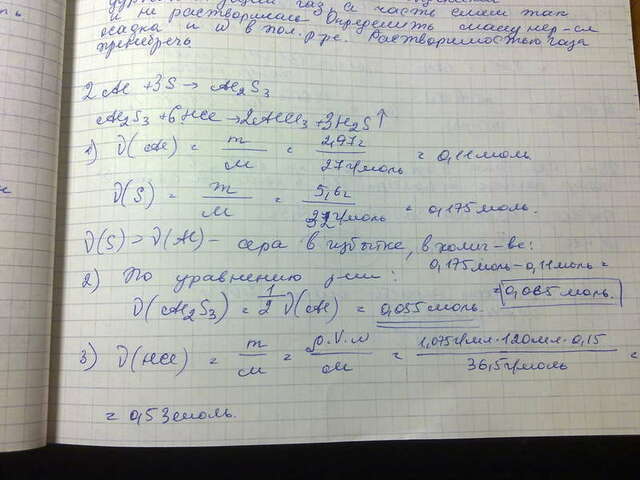 газ, а часть смеси так
и не растворилась. Определить массу нер-ся
осадка и w в пол. р-ре. Растворимостью газа
пренебречь
2Al + 3S → Al₂S₃
Al₂S₃ + 6HCl → 2AlCl₃ + 3H₂S↑
1) ν(Al) = m/M = 2,97г/27г/моль = 0,11моль
ν(S) = m/M = 5,6г/32г/моль = 0,175моль.
ν(S) > ν(Al) – сера в избытке, в колич-ве:
0,175моль – 0,11моль =
= 0,065моль.
2) По уравнению р-ии:
ν(Al₂S₃) = 1/2 ν(Al) = 0,055моль
3) ν(HCl) = m/M = ρ·V·w/M = 1,075г/мл·120мл·0,15/36,5г/моль =
= 0,53моль.